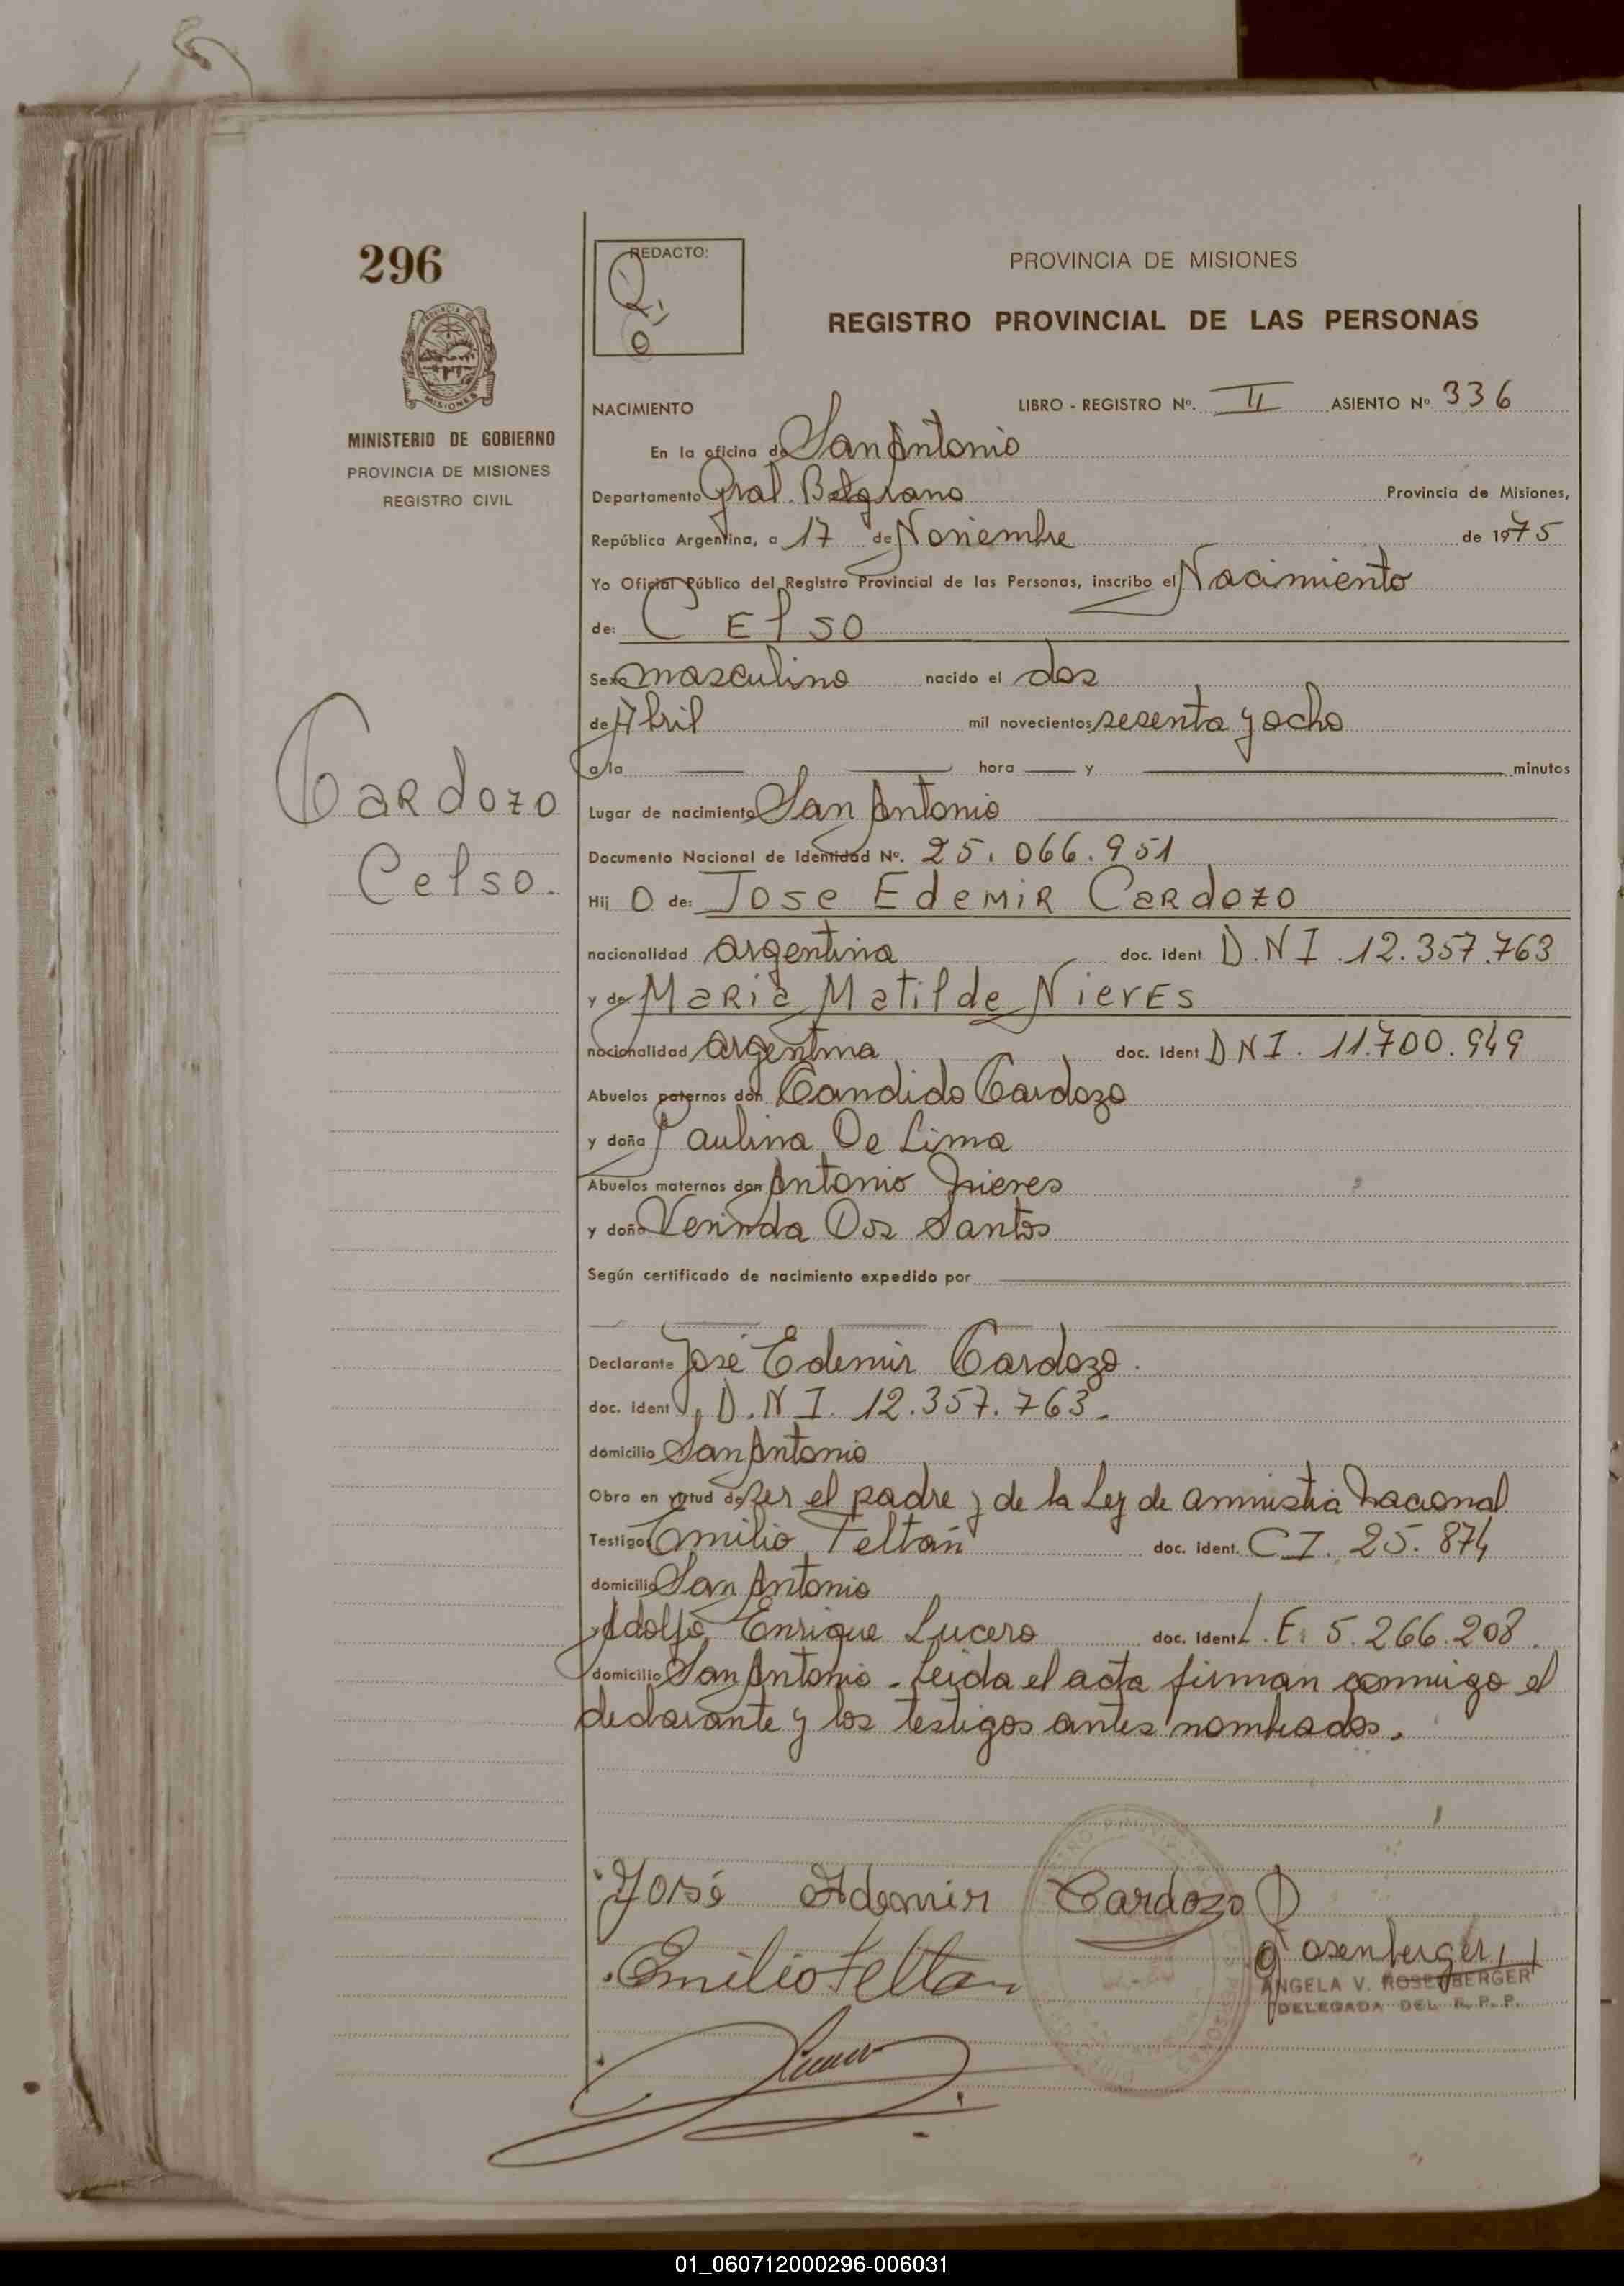 296
REDACTO:
PROVINCIA DE MISIONES
REGISTRO PROVINCIAL DE LAS PERSONAS
MINISTERIO DE GOBIERNO
PROVINCIA DE MISIONES
REGISTRO CIVIL
NACIMIENTO LIBRO - REGISTRO Nº. II ASIENTO Nº 336
En la oficina de San Antonio
Departamento Gral. Belgrano Provincia de Misiones,
República Argentina, a 17 de Noviembre de 1975
Yo Oficial Público del Registro Provincial de las Personas, inscribo el Nacimiento
de: Celso
Sexo masculino nacido el dos
de Abril mil novecientos sesenta y ocho
a la hora y minutos
Cardozo
Celso.
Lugar de nacimiento San Antonio
Documento Nacional de Identidad Nº. 25.066.951
Hij o de: Jose Edemir Cardozo
nacionalidad argentina doc. ident. D.N I. 12.357.763
y de: Maria Matilde Nieves
nacionalidad argentina doc. ident D N I. 11.700.949
Abuelos paternos don Candido Cardozo
y doña Paulina De Lima
Abuelos maternos don Antonio Nieves
y doña Dos Santos
Según certificado de nacimiento expedido por
Declarante José Edemir Cardozo.
doc. ident. D.N I. 12.357.763.
domicilio San Antonio
Obra en virtud de ser el padre y de la Ley de amnistia nacional
Testigos Emilio Feltan doc. ident. C.I. 25.874
domicilio San Antonio
Adolfo Enrique Lucero doc. ident L.E. 5.266.208.
domicilio San Antonio - Leida el acta firman conmigo el
declarante y los testigos antes nombrados.
José Ademir Cardozo
Rosenberger
Emilio Feltan
ANGELA V. ROSENBERGER
DELEGADA DEL R. P. P.
Lucero
01_060712000296-006031